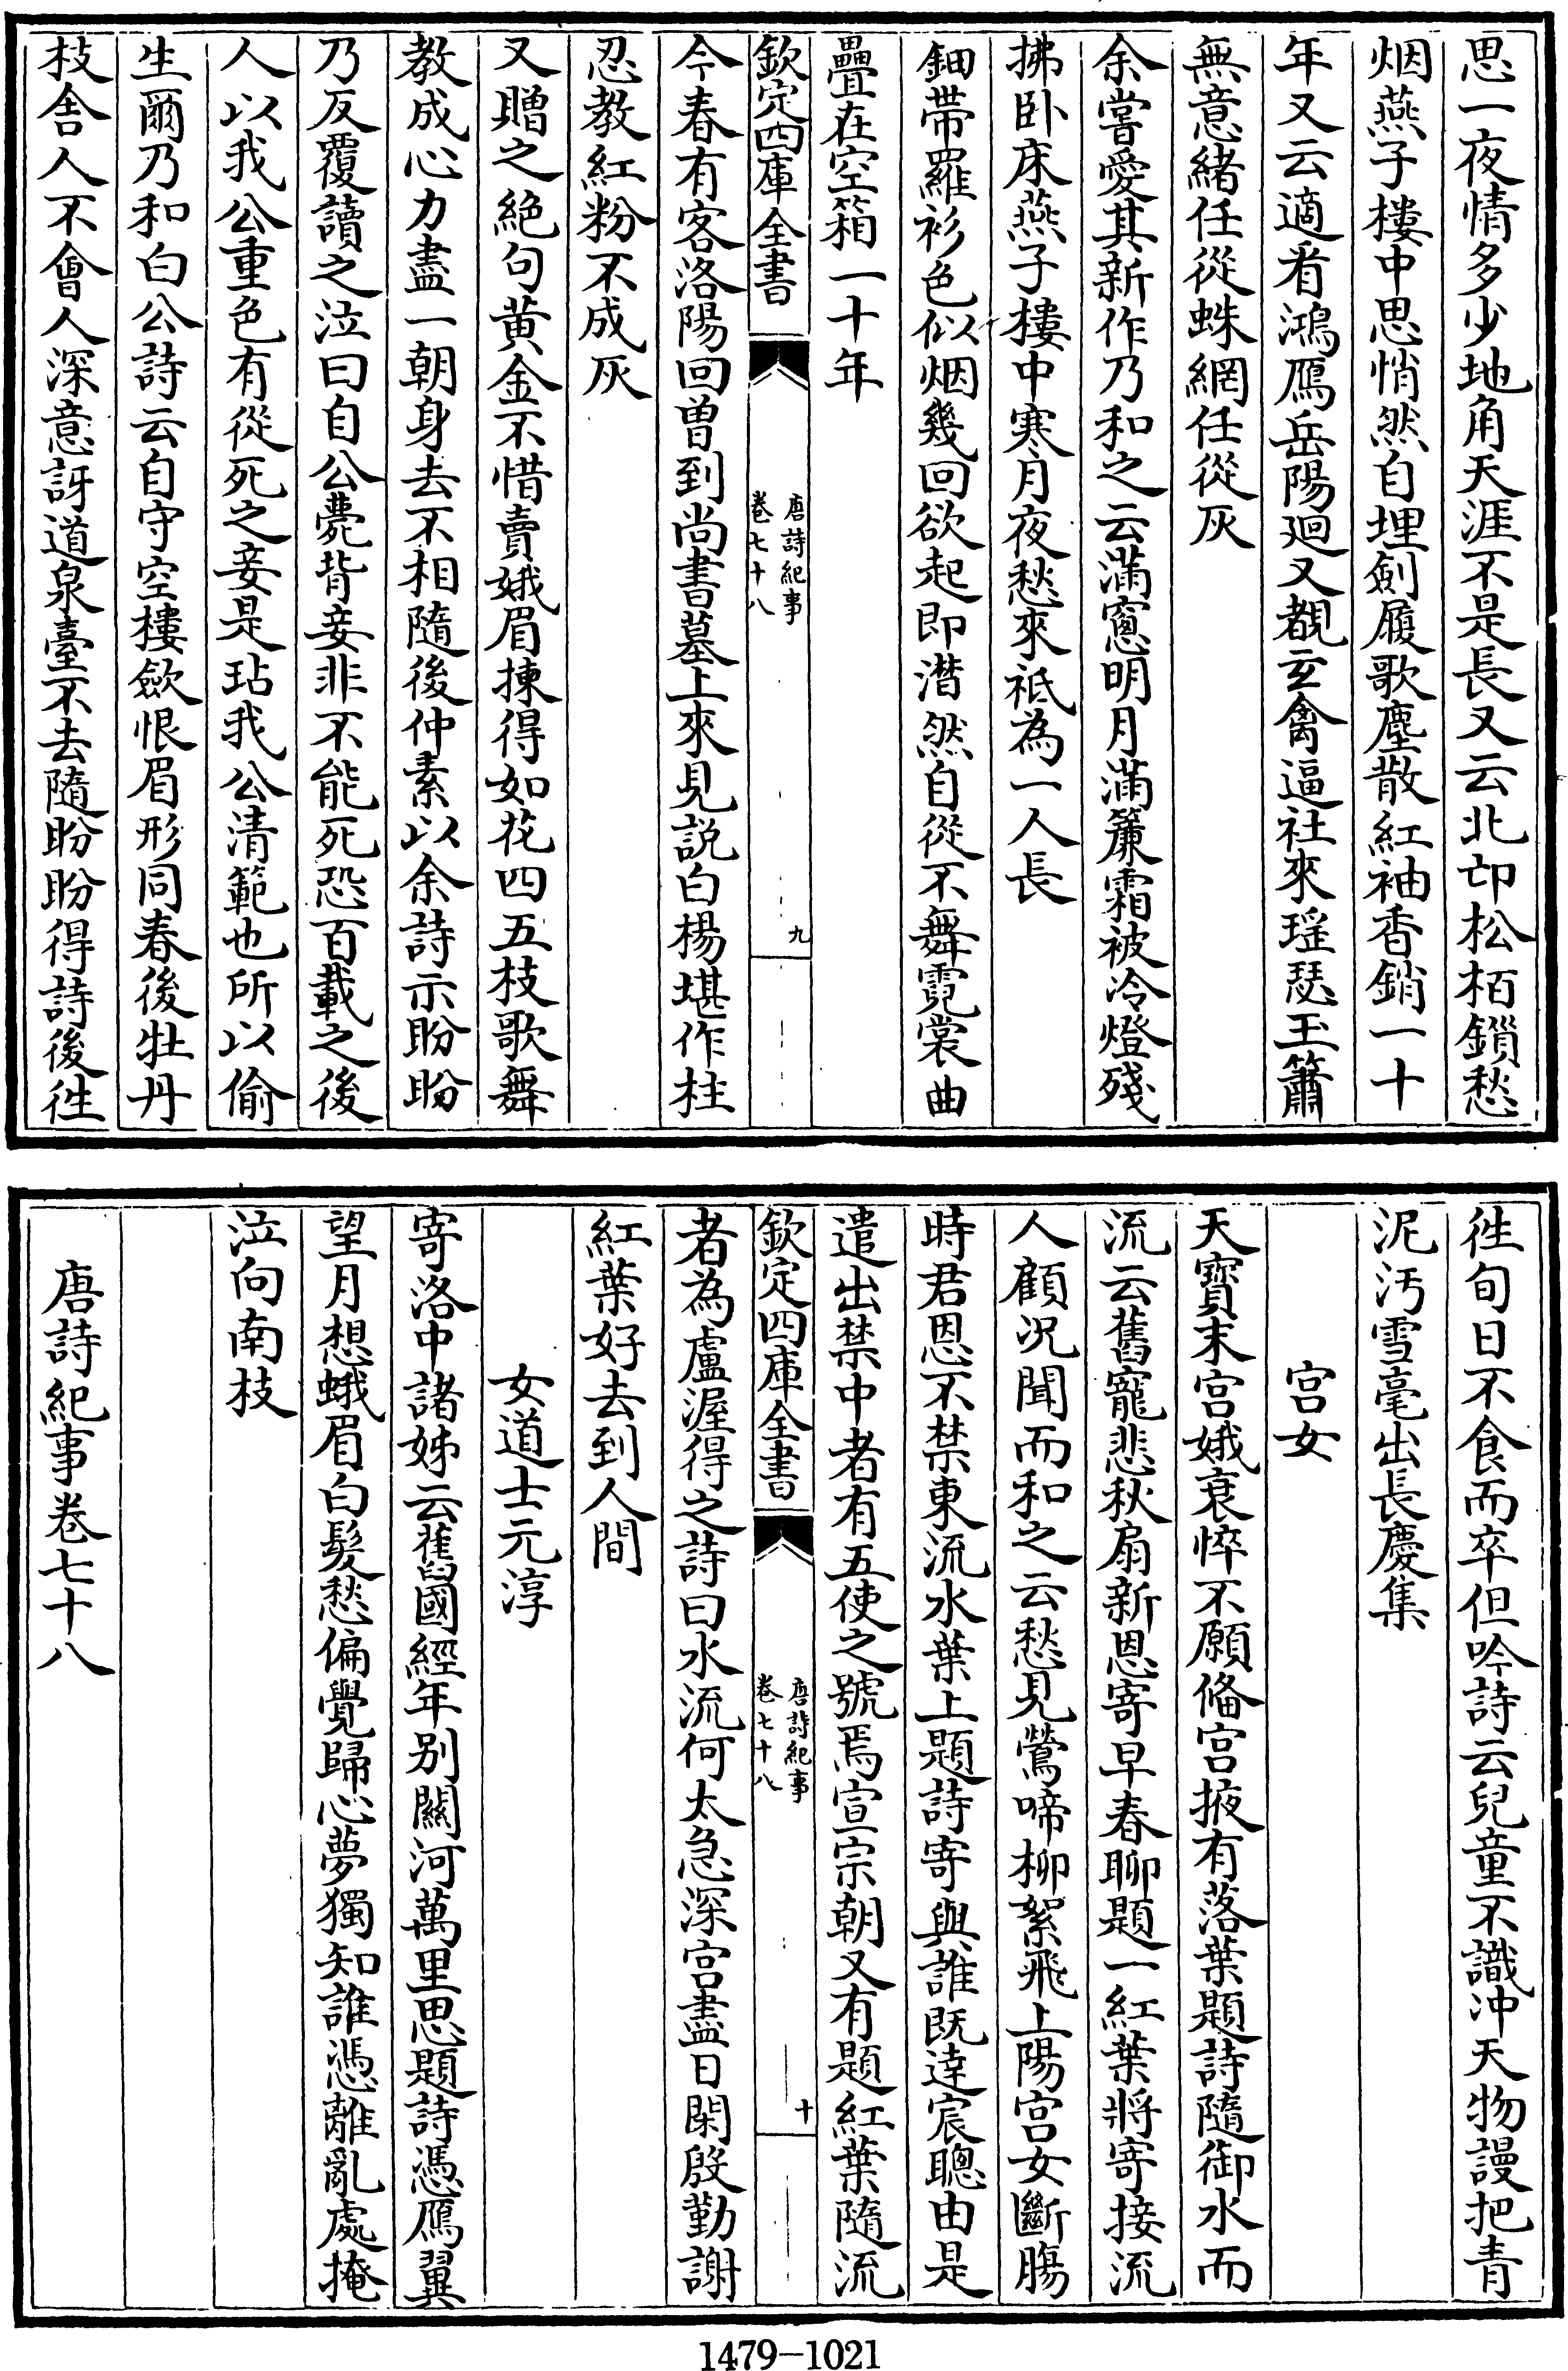 思一夜情多少地角天涯不是長又云北邙松柏鎖愁
烟燕子樓中思悄然自埋劍履歌塵散紅袖香銷一十
年又云適看鴻鴈岳陽廻又覩玄禽逼社來瑶瑟玉簫
無意緒任從蛛網任從灰
余嘗愛其新作乃和之云滿窻明月滿簾霜被冷燈殘
拂卧床燕子樓中寒月夜愁來祗為一人長
鈿帶羅衫色似烟幾回欲起即潜然自從不舞霓裳曲
疊在空箱一十年
欽定四庫全書
唐詩紀事
卷七十八
九
今春有客洛陽回曽到尚書墓上來見説白楊堪作柱
忍教紅粉不成灰
又贈之絶句黄金不惜賣娥眉揀得如花四五枝歌舞
教成心力盡一朝身去不相隨後仲素以余詩示盼盼
乃反覆讀之泣曰自公薨背妾非不能死恐百載之後
人以我公重色有從死之妾是玷我公清範也所以偷
生爾乃和白公詩云自守空樓歛恨眉形同春後牡丹
枝舍人不會人深意訝道泉臺不去隨盼盼得詩後徃
徃旬日不食而卒但吟詩云兒童不識冲天物謾把青
泥汚雪毫出長慶集
宫女
天寳末宫娥衰悴不願備宫掖有落葉題詩隨御水而
流云舊寵悲秋扇新恩寄早春聊題一紅葉將寄接流
人顧况聞而和之云愁見鶯啼柳絮飛上陽宫女斷腸
時君恩不禁東流水葉上題詩寄與誰既達宸聰由是
遣出禁中者有五使之號焉宣宗朝又有題紅葉隨流
欽定四庫全書
唐詩紀事
卷七十八
十
者為盧渥得之詩曰水流何太急深宫盡日閑殷勤謝
紅葉好去到人間
女道士元淳
寄洛中諸姊云舊國經年别關河萬里思題詩憑鴈翼
望月想蛾眉白髮愁偏覺歸心夢獨知誰憑離亂處掩
泣向南枝
唐詩紀事卷七十八
1479-1021